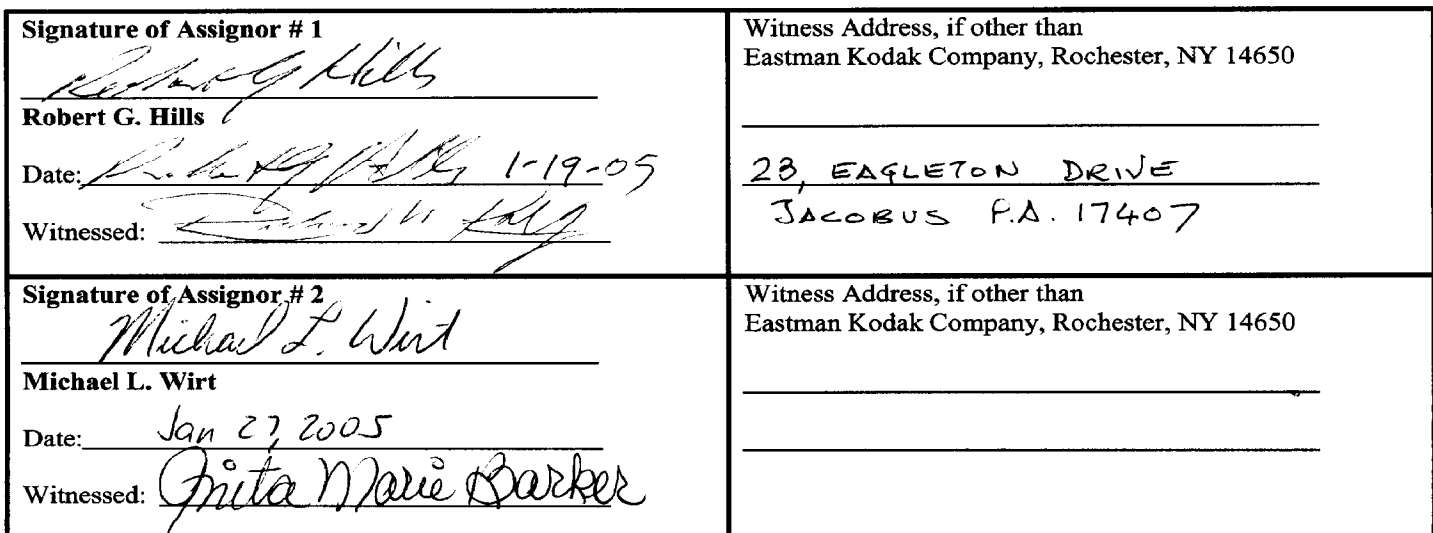 Signature of Assignor # 1
Robert G Hills
Robert G. Hills
Date: Robert G Hills 1-19-05
Witnessed: Richard
Witness Address, if other than
Eastman Kodak Company, Rochester, NY 14650
23, EAGLETON DRIVE
JACOBUS P.A. 17407
Signature of Assignor # 2
Michael L. Wirt
Michael L. Wirt
Date: Jan 27, 2005
Witnessed: Anita Marie Barker
Witness Address, if other than
Eastman Kodak Company, Rochester, NY 14650